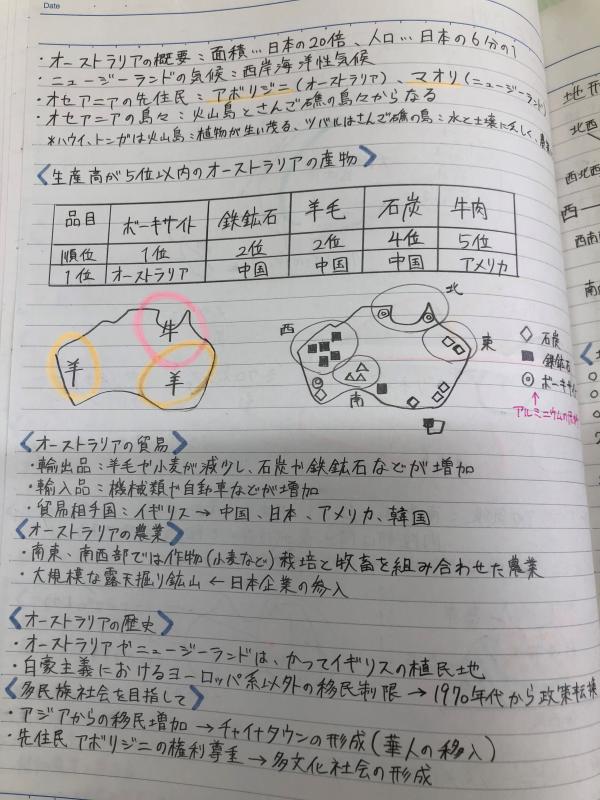 Date
・オーストラリアの概要：面積…日本の20倍、人口…日本の6分の1
・ニュージーランドの気候：西岸海洋性気候
・オセアニアの先住民：アボリジニ(オーストラリア)、マオリ(ニュージーランド)
・オセアニアの島々：火山島とさんご礁の島々からなる
*ハワイ、トンガは火山島：植物が生い茂る、ツバルはさんご礁の島：水と土壌に乏しく、農業
〈生産高が5位以内のオーストラリアの産物〉
品目 ボーキサイト 鉄鉱石 羊毛 石炭 牛肉
順位 1位 2位 2位 4位 5位
1位 オーストラリア 中国 中国 中国 アメリカ
牛
羊 羊
北
西 東
南
◇石炭
■鉄鉱石
◎ボーキサイ
↑
アルミニウムの
〈オーストラリアの貿易〉
・輸出品：羊毛や小麦が減少し、石炭や鉄鉱石などが増加
・輸入品：機械類や自動車などが増加
・貿易相手国：イギリス→中国、日本、アメリカ、韓国
〈オーストラリアの農業〉
・南東、南西部では作物(小麦など)栽培と牧畜を組み合わせた農業
・大規模な露天掘り鉱山←日本企業の参入
〈オーストラリアの歴史〉
・オーストラリアやニュージーランドは、かつてイギリスの植民地
・白豪主義におけるヨーロッパ系以外の移民制限→1970年代から政策転換
〈多民族社会を目指して〉
・アジアからの移民増加→チャイナタウンの形成(華人の移入)
・先住民アボリジニの権利尊重→多文化社会の形成
地形
北西
西北西
西
西南
南